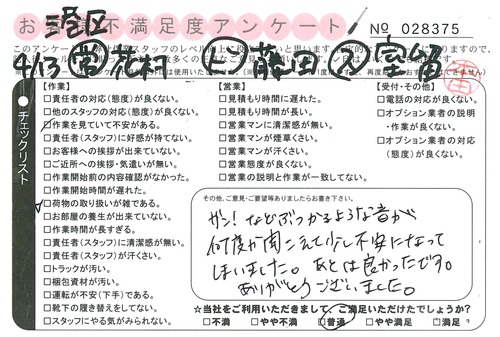 お客様不満足度アンケート
No 028375
港区
4/13
花村
藤田
【作業】
□責任者の対応(態度)が良くない。
□他のスタッフの対応(態度)が良くない。
□作業を見ていて不安がある。
□責任者(スタッフ)に好感が持てない。
□お客様への挨拶が出来ていない。
□ご近所への挨拶・気遣いが無い。
□作業開始前の内容確認がなかった。
□作業開始時間が遅れた。
□荷物の取り扱いが雑である。
□お部屋の養生が出来ていない。
□作業時間が長すぎる。
□責任者(スタッフ)に清潔感が無い。
□責任者(スタッフ)が汗くさい。
□トラックが汚い。
□梱包資材が汚い。
□運転が不安(下手)である。
□靴下の履き替えをしてない。
□スタッフにやる気がみられない。
【営業】
□見積もり時間に遅れた。
□見積もり時間が長い。
□営業マンに清潔感が無い。
□営業マンが煙草くさい。
□営業マンが汗くさい。
□営業態度が良くない。
□営業の説明と作業が一致してない。
【受付・その他】
□電話の対応が良くない。
□オプション業者の説明
・作業が良くない。
□オプション業者の対応
(態度)が良くない。
チェックリスト
その他、ご意見・ご要望等ありましたらお書き下さい。
ガン!などぶつかるような音が
何度か聞こえて少し不安になって
しまいました。あとは良かったです。
ありがとうございました。
☆当社をご利用いただきまして、ご満足いただけたでしょうか?
□不満 □やや不満 □普通 □やや満足 □満足